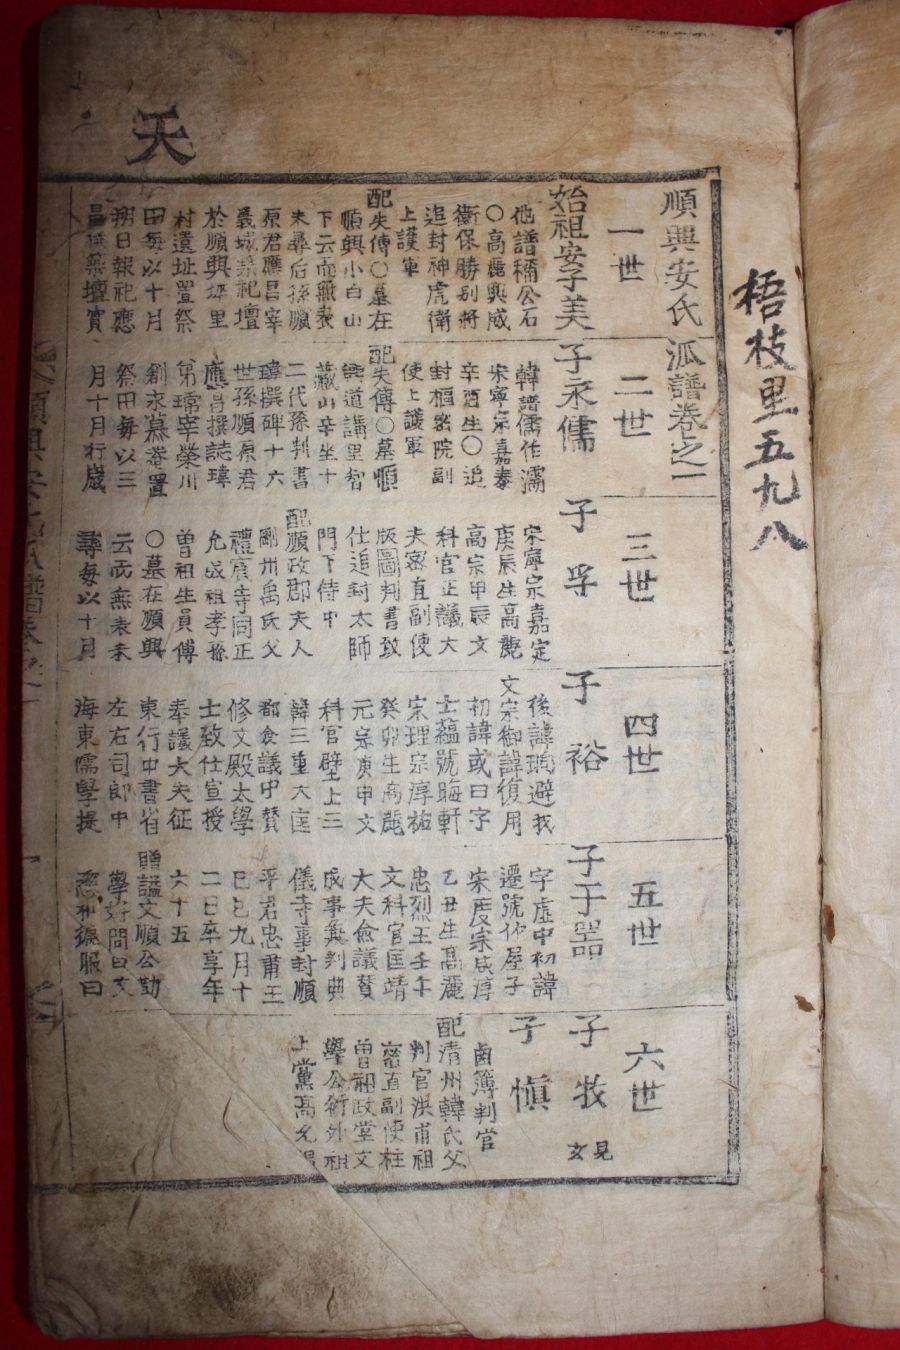 梧枝里五九八
天
順興安氏派譜卷之一
一世
始祖安子美
他譜稱公石
〇高麗興威
衛保勝別將
追封神虎衛
上護軍
配失傳〇墓在
順興小白山
下云而無表
未尋后孫順
原君應昌宰
義城築祀壇
於順興坪里
村遺址置祭
田每以十月
朔日報祀應
昌築壇實
二世
子永儒
韓譜儒作濡
宋寧宗嘉泰
辛酉生〇追
封樞密院副
使上護軍
配失傳〇墓順
興道講里智
藏山辛坐十
二代孫判書
瑋撰碑十六
世孫順原君
應昌撰誌瑋
第琇宰榮川
創永慕菴置
祭田每以三
月十月行歲
三世
子孚
宋寧宗嘉定
庚辰生高麗
高宗甲辰文
科官正議大
夫密直副使
版圖判書致
仕追封太師
門下侍中
配順政郡夫人
剛州禹氏父
禮賓寺同正
允成祖孝孫
曾祖生員傅
〇墓在順興
云而無表未
尋每以十月
四世
子裕
後諱珦避我
文宗御諱復用
初諱或曰字
士蘊號晦軒
宋理宗淳祐
癸卯生高麗
元宗庚申文
科官壁上三
韓三重大匡
都僉議中賛
修文殿太學
士致仕宣授
奉議大夫征
東行中書省
左右司郎中
海東儒學提
五世
子于器
字虛中初諱
遷號竹屋子
宋度宗咸淳
乙丑生高麗
忠烈王壬午
文科官匡靖
大夫僉議賛
成事兼判典
儀寺事封順
平君忠肅王
己巳九月十
二日卒享年
六十五
贈諡文順公勤
學好問曰文
慈和徧服曰
六世
子牧
見玄
子愼
鹵簿判官
配清州韓氏父
判官洪甫祖
密直副使柱
曾祖政堂文
學公衍外祖
上黨高允